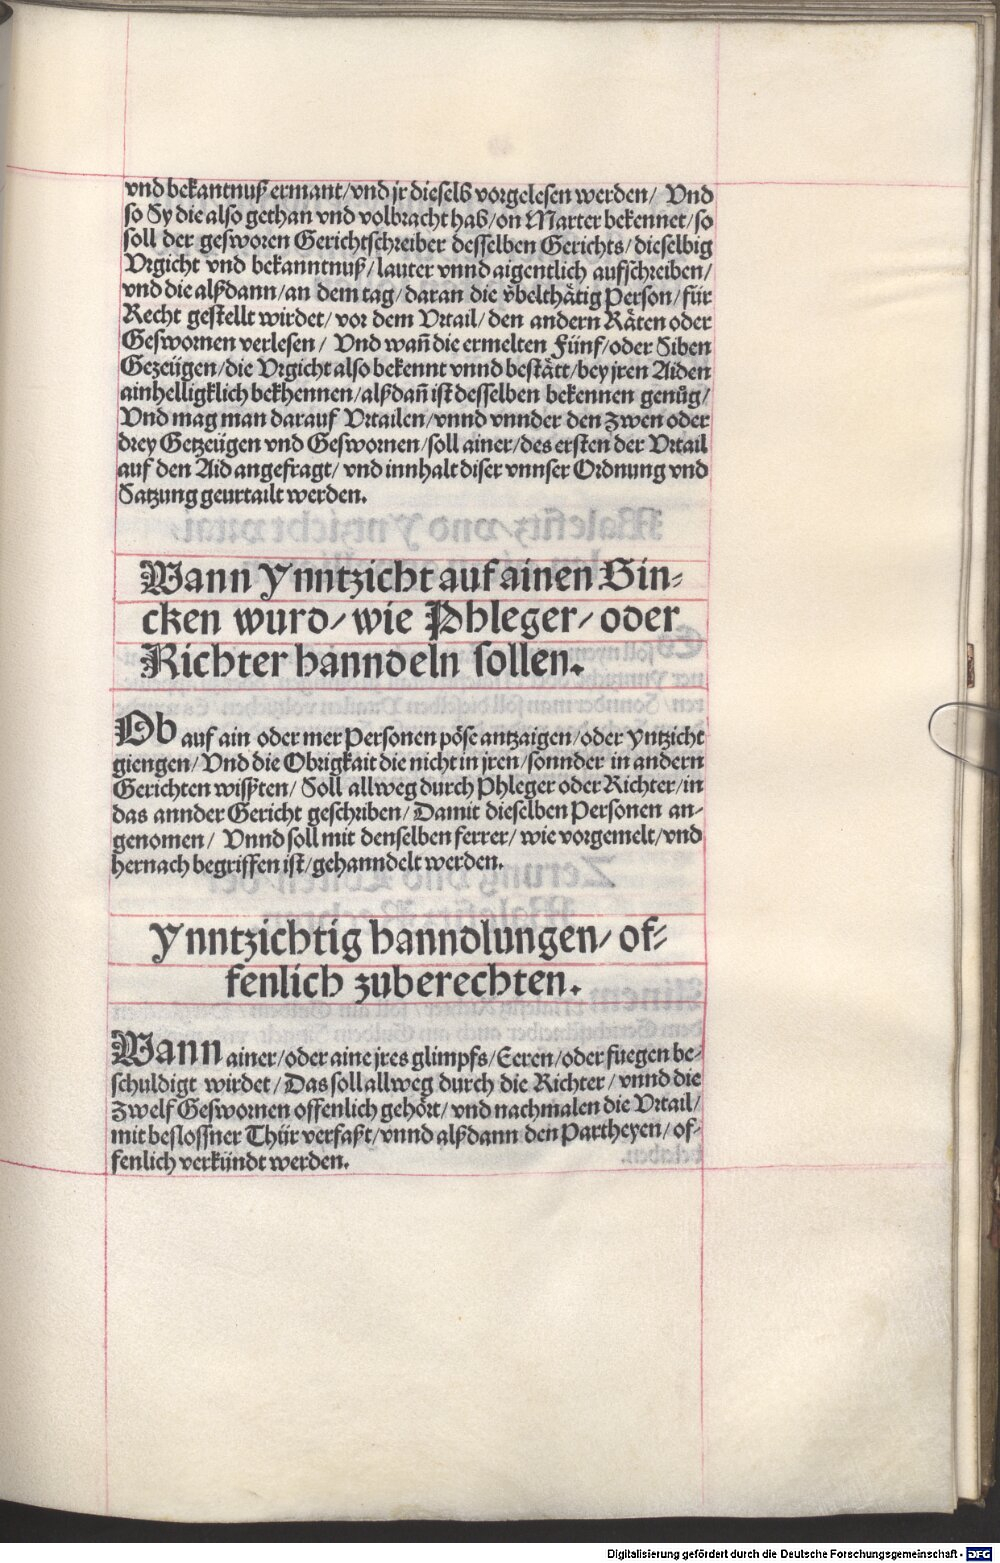 vnd bekantnuß ermant/vnd jr dieselb vorgelesen werden/ Vnd
so Sy die also gethan vnd volbracht hab/on Marter bekennet/so
soll der gesworen Gerichtschreiber desselben Gerichts/dieselbig
Vrgicht vnd bekanntnuß/lauter vnnd aigentlich aufschreiben/
vnd die alßdann/an dem tag/daran die v̈belthätig Person/für
Recht gestellt wirdet/vor dem Vrtail/den andern Räten oder
Geswornen verlesen/ Vnd wañ die ermelten Fünf/oder Siben
Gezeügen/die Vrgicht also bekennt vnnd bestätt/bey jren Aiden
ainhelligklich bekhennen/alßdañ ist desselben bekennen genůg/
Vnd mag man darauf Vrtailen/vnnd vnnder den zwen oder
drey Getzeügen vnd Geswornen/soll ainer/des ersten der Vrtail
auf den Aid angefragt/vnd innhalt diser vnnser Ordnung vnd
Satzung geurtailt werden.
Wann Ynntzicht auf ainen Gin-
cken wurd/wie Phleger/oder
Richter hanndeln sollen.
Ob auf ain oder mer Personen pöse antzaigen/oder yntzicht
giengen/Vnd die Obrigkait die nicht in jren/sonnder in andern
Gerichten wissten/Soll allweg durch Phleger oder Richter/in
das annder Gericht geschriben/Damit dieselben Personen an-
genomen/ Vnnd soll mit denselben ferrer/wie vorgemelt/vnd
hernach begriffen ist/gehanndelt werden.
Ynntzichtig hanndlungen/of-
fenlich zuberechten.
Wann ainer/oder aine jres glimpfs/Eeren/oder fuegen be-
schuldigt wirdet/Das soll allweg durch die Richter/vnnd die
zwelf Geswornen offenlich gehört/vnd nachmalen die Vrtail/
mit beslossner Thür verfaßt/vnnd alßdann den Partheyen/of-
fenlich verkündt werden.
Digitalisierung gefördert durch die Deutsche Forschungsgemeinschaft - DFG